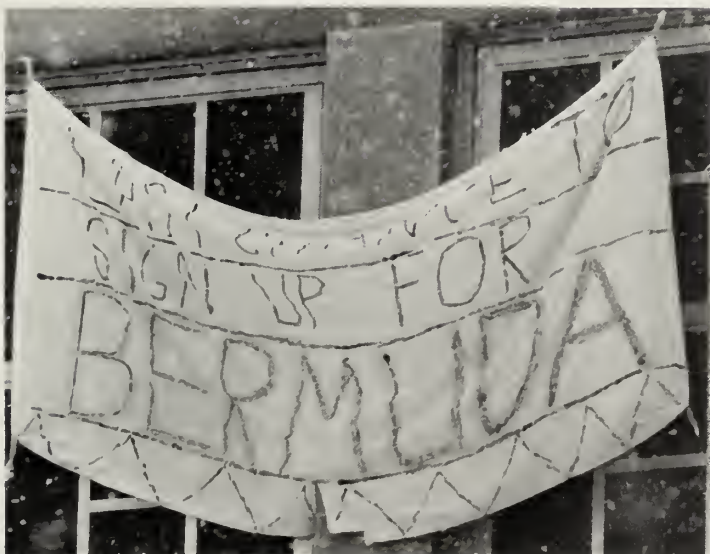 YOUR CHANCE TO
SIGN UP FOR
BERMUDA